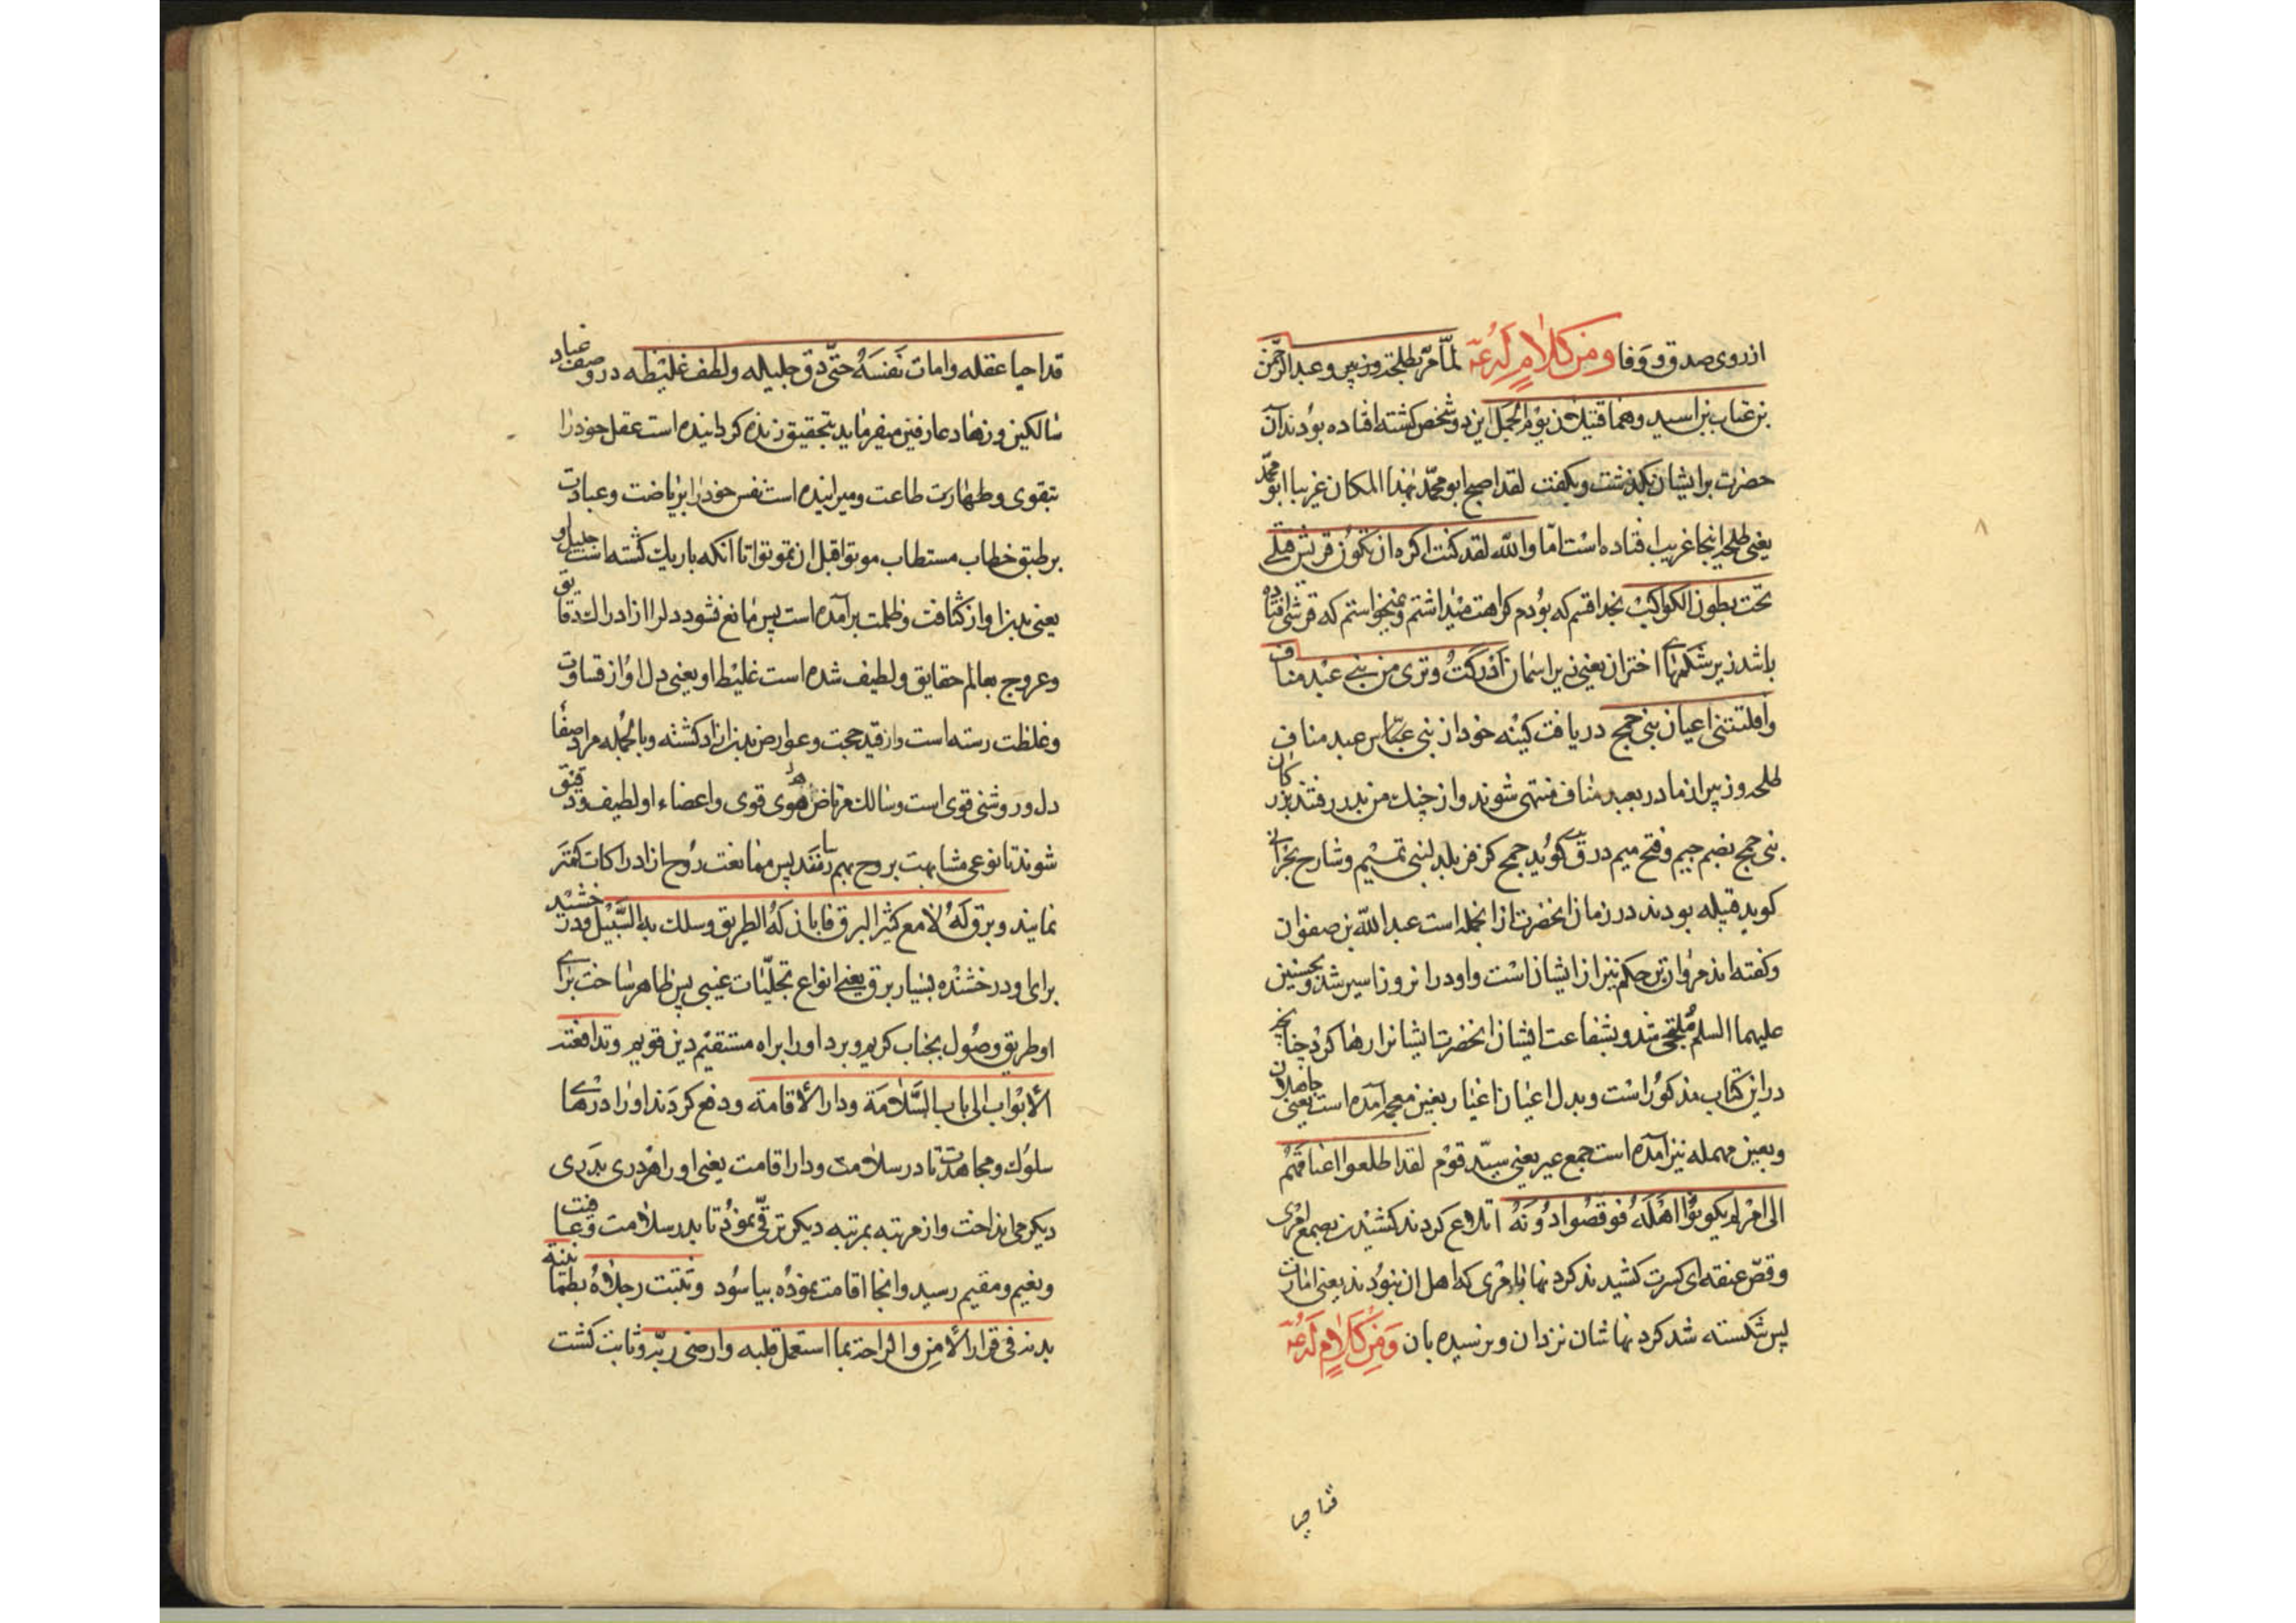 ازروی صدق و وفا ومن کلامٍ لَهُ عۃ لمّا مرّ بطلحة و زبیر و عبد الرّحمن
بن عتاب بن اسید و هما قتیلان یوم الجمل این دو شخص کشته افتاده بودند آن
حضرت بر ایشان بگذشت و بگفت لقد اصبح ابو محمّد بهذا المکان غریبا ابو محمّد
یعنی طلحه اینجا غریب افتاده است امّا والله لقد کنت اکره ان تکون قریش قتلی
تحت بطون الکواکب بخدا قسم که بودم کراهت میداشتم و نمیخواستم که قرشی افتاده
باشد زیر شکمهای اختران یعنی زیر اسمان ادرکت وتری من بنی عبد مناف
وافلتتنی اعیان بنی جمح دریافت کینه خود از بنی عبد مناف
طلحه و زبیر از مادر بعبد مناف منتهی شوند و از چنك من بدر رفتند بزرکان
بنی جمح بضم جیم و فتح میم در ق کوید جمح کزفر بلد لبنی تمیم و شارح بحرانی
کوید قبیله بودند در زمان انحضرت از انجمله است عبد الله بن صفوان
و کفته اند مروان بن حکم نیز از ایشان است و او در انروز اسیر شد و بحسنین
علیهما السلم ملتجی شد و بشفاعت ایشان انحضرت ایشانرا رها کرد چنانچه
در این کتاب مذکور است و بدل اعیان اغیار بغین معجمه آمده است یعنی جاهلان
و بعین مهمله نیز آمده است جمع عیر یعنی سیّد قوم لقد اطلعوا اعناقهم
الی امر لم یکونوا اهله فوقصوا دونه اتلاع کردند کشیدن بصمع امری
وقصّ عنقه ای کسرت کشیدند کردنها بامری که اهل ان نبودند یعنی امارت
پس شکسته شد کردنهاشان نزد ان و نرسیده بان وَمِنْ کَلامٍ لَهُ عۃ
قد احیا
قد احیا عقله وامات نَفسَهُ حتّی دق جلیله ولطف غلیظه در وصف عباد
سالکین و زهاد عارفین میفرماید بتحقیق زنده کردانیده است عقل خود را
بتقوی و طهارت طاعت و میرانیده است نفس خود را بریاضت و عبادت
بر طبق خطاب مستطاب موتوا قبل ان تموتوا تا انکه باریك کشته است جلیل او
یعنی بدن او از کثافت و ظلمت برآمده است پس مانع نشود دل را از ادراك دقایق
و عروج بعالم حقایق و لطیف شده است غلیظ او یعنی دل او از قساوت
و غلظت رسته است و از قید حجب و عوارض بدن ازاد کشته و بالجمله مراد صفای
دل و روشنی قوی است و سالك مرتاض هوی قوی و اعضاء او لطیف و دقیق
شوند تا نوعی مشابهت بروح بهم رسانند پس ممانعت روح از ادراکات کمتر
نمایند و برق لَهُ لامع کثیر البرق فابان لَهُ الطریق وسلك به السَّبیل و درخشید
برای او درخشنده بسیار برق یعنی انواع تجلّیات غیبی پس ظاهر ساخت برای
او طریق وصول بجناب کریم و برد او را براه مستقیم دین قویم وتدافعته
الأبواب الی باب السَّلامة ودار الأقامة و دفع کردند او را درهای
سلوك و مجاهدت تا در سلامت و دار اقامت یعنی او را هر دری بدری
دیکر می انداخت و از مرتبه بمرتبه دیکر ترقّی نمود تا بدر سلامت و عافیت
و نعیم و مقیم رسید و انجا اقامت نموده بیاسود وثبتت رجلاهُ بطمانینة
بدنه فی قرار الأمن والراحة بما استعمل قلبه وارضی ربّه و ثابت کشت